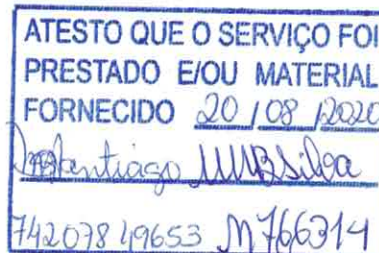 ATESTO QUE O SERVIÇO FOI
PRESTADO E/OU MATERIAL
FORNECIDO 20/08/2020
Santiago Silva
74207849653 M766314